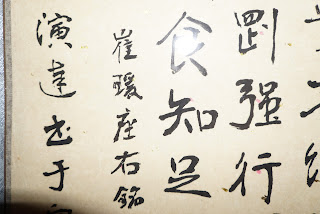 剛强行
食知足
崔瑗座右銘
演達书于